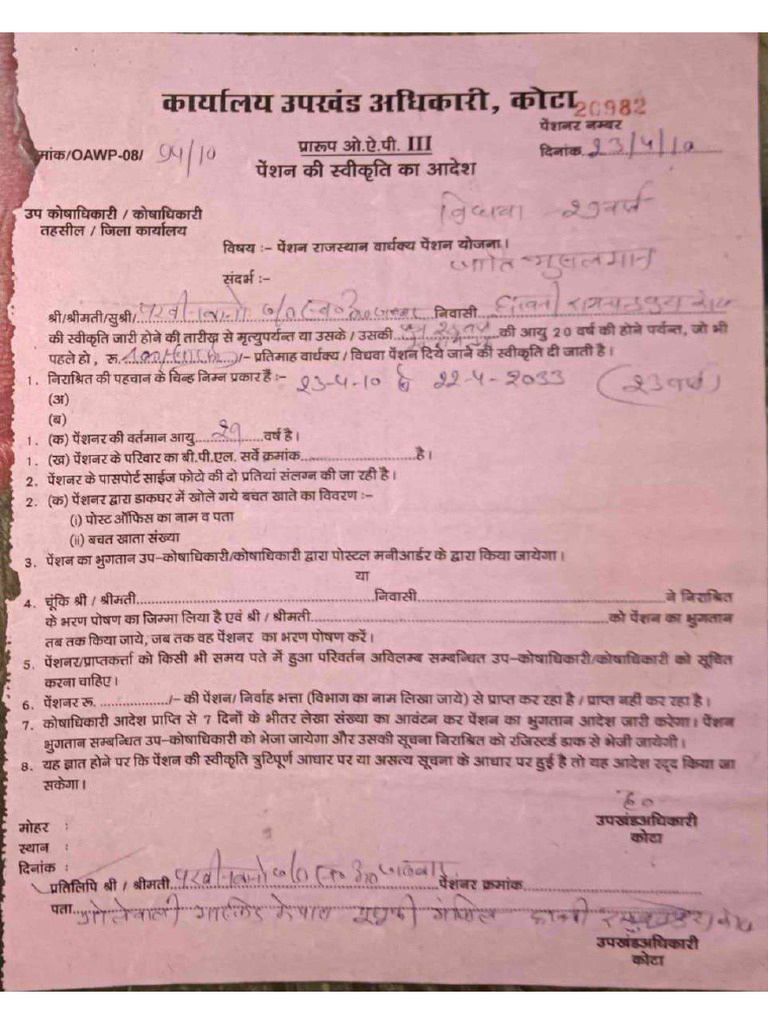 कार्यालय उपखंड अधिकारी, कोटा 20982
पेंशनर नम्बर
मांक/OAWP-08/ 94/10 प्रारूप ओ.ऐ.पी. III दिनांक 23/4/10
पेंशन की स्वीकृति का आदेश
उप कोषाधिकारी / कोषाधिकारी विधवा - 29 वर्ष
तहसील / जिला कार्यालय
विषय :- पेंशन राजस्थान वार्धक्य पेंशन योजना।
जाति मुसलमान
संदर्भ :-
श्री/श्रीमती/सुश्री/ निवासी
की स्वीकृति जारी होने की तारीख से मृत्युपर्यन्त या उसके / उसकी की आयु 20 वर्ष की होने पर्यन्त, जो भी
पहले हो , रू. /- प्रतिमाह वार्धक्य / विधवा पेंशन दिये जाने की स्वीकृति दी जाती है।
1. निराश्रित की पहचान के चिन्ह निम्न प्रकार है :- 23-4-10 से 22-4-2033 (23 वर्ष)
(अ)
(ब)
1. (क) पेंशनर की वर्तमान आयु 29 वर्ष है।
1. (ख) पेंशनर के परिवार का बी.पी.एल. सर्वे क्रमांक है।
2. पेंशनर के पासपोर्ट साईज फोटो की दो प्रतियां संलग्न की जा रही है।
2. (क) पेंशनर द्वारा डाकघर में खोले गये बचत खाते का विवरण :-
(i) पोस्ट ऑफिस का नाम व पता
(ii) बचत खाता संख्या
3. पेंशन का भुगतान उप-कोषाधिकारी/कोषाधिकारी द्वारा पोस्टल मनीआर्डर के द्वारा किया जायेगा।
या
4. चूंकि श्री / श्रीमती निवासी ने निराश्रित
के भरण पोषण का जिम्मा लिया है एवं श्री / श्रीमती को पेंशन का भुगतान
तब तक किया जाये, जब तक वह पेंशनर का भरण पोषण करें।
5. पेंशनर/प्राप्तकर्त्ता को किसी भी समय पते में हुआ परिवर्तन अविलम्ब सम्बन्धित उप-कोषाधिकारी/कोषाधिकारी को सूचित
करना चाहिए।
6. पेंशनर रू. /- की पेंशन/ निर्वाह भत्ता (विभाग का नाम लिखा जाये) से प्राप्त कर रहा है / प्राप्त नही कर रहा है।
7. कोषाधिकारी आदेश प्राप्ति से 7 दिनों के भीतर लेखा संख्या का आवंटन कर पेंशन का भुगतान आदेश जारी करेगा। पेंशन
भुगतान सम्बन्धित उप-कोषाधिकारी को भेजा जायेगा और उसकी सूचना निराश्रित को रजिस्टर्ड डाक से भेजी जायेगी।
8. यह ज्ञात होने पर कि पेंशन की स्वीकृति त्रुटिपूर्ण आधार पर या असत्य सूचना के आधार पर हुई है तो यह आदेश रद्द किया जा
सकेगा।
ह०
उपखंडअधिकारी
मोहर : कोटा
स्थान :
दिनांक :
प्रतिलिपि श्री / श्रीमती पेंशनर क्रमांक
पता
उपखंडअधिकारी
कोटा